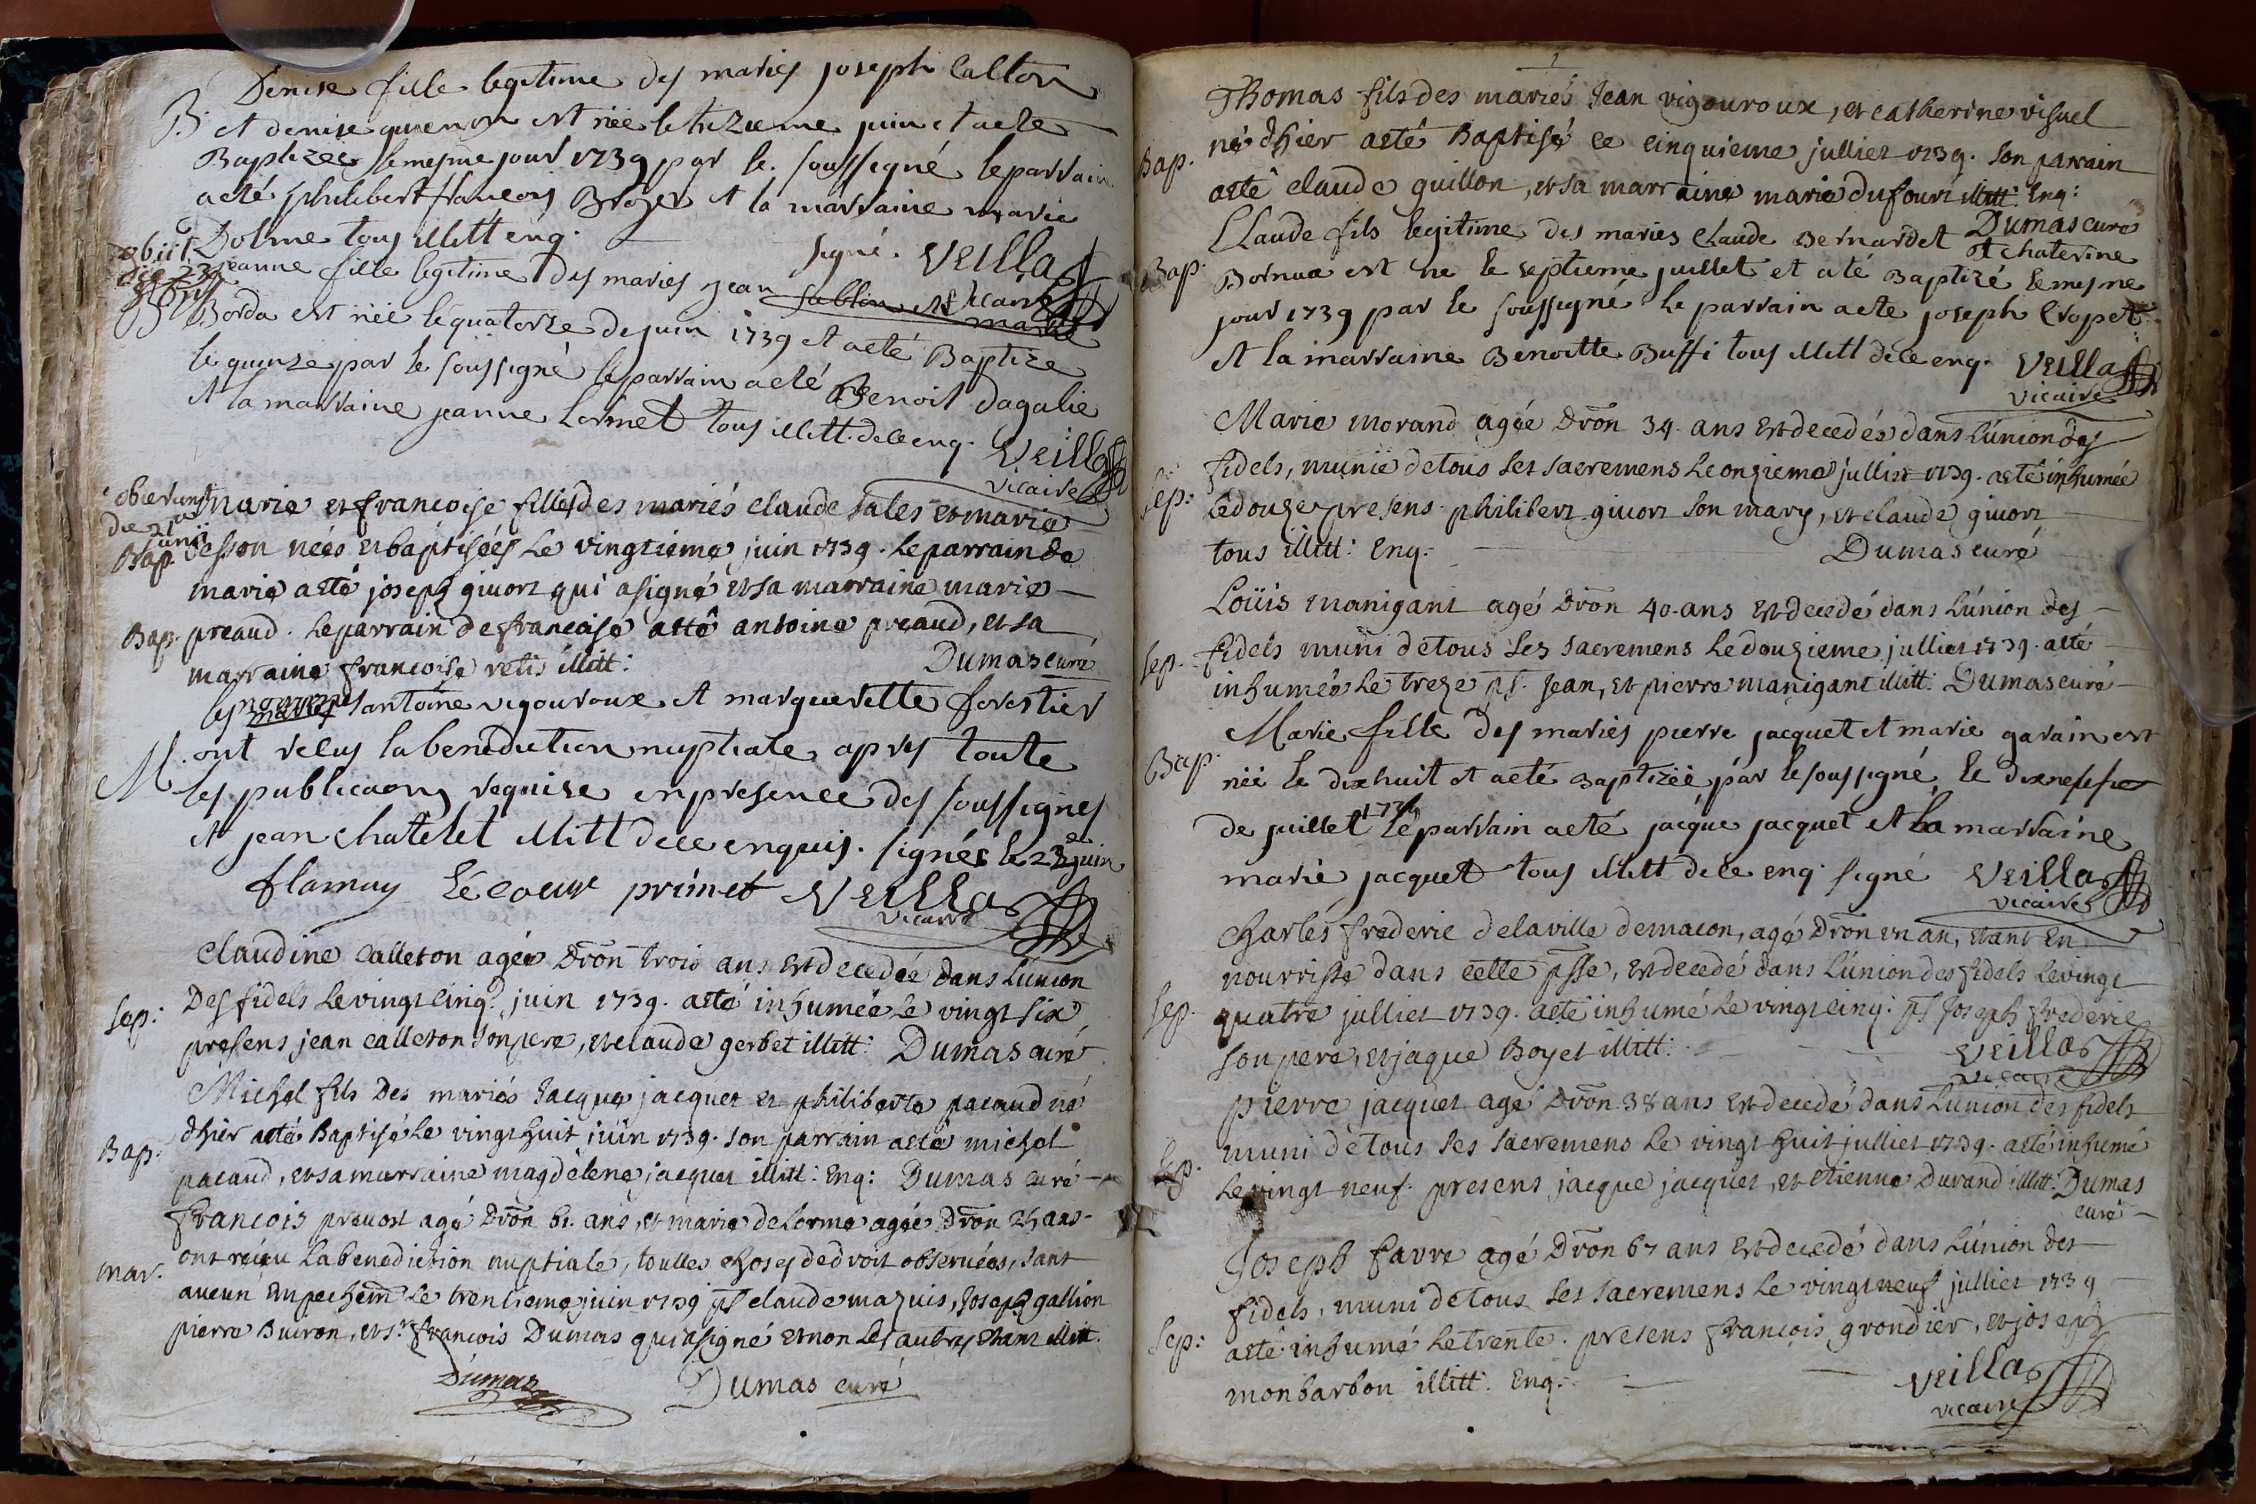 Denise fille legitime des mariés joseph Calton
B. et denise quenon est née le trizieme juin et aeté
Baptizée le mesme jour 1739 par le soussigné le parrain
aeté philibert francois Broyer et la marraine marie
Dolme tous illitt enq. signé. Veillas
vicaire
obiit
jeanne fille legitime des mariés jean sablon et marie
B Borda est née le quatorze de juin 1739 et aeté Baptize
le quinze par le soussigné le parrain aeté Benoit dagalie
et la marraine jeanne Lornet tous illitt. de ce enq. Veillas
vicaire
obierunt
Marie et francoise filles des mariés claude sales et marie
Bap. desson nées et baptisées le vingtieme juin 1739. le parrain de
marie aeté joseph givort qui a signé et sa marraine marie
Bap. preaud. le parrain de francoise aeté antoine preaud, et sa
marraine francoise velis illitt: Dumas curé
les nommes antoine vigouroux et marguerette forestier
M. ont reçus la benediction nuptiale apres toute
les publicaons requise en presence des soussignes
et jean chatelet illitt de ce enquis. signés le 23 juin
flamuy Lécoeur primet Veillas
vicaire
Claudine calleton agée dron trois ans est decedée dans l'union
Sep: Des fidels le vingt cinq. juin 1739. aeté inhumée le vingt six
presens jean calleton son pere, et claude gerbet illitt: Dumas curé
Michel fils des mariés Jacque jacquet et philiberte pacaud né
Bap. d'hier aeté Baptisé le vingt huit juin 1739. son parrain aeté michel
pacaud, et sa marraine magdelene jacquet illitt: Enq: Dumas curé
francois prevost agé dron 61. ans, et marie delorme agée dron 25 ans
mar. ont reçeu la benediction nuptiale, toutes choses de droit observées, sans
aucun Empechem le trentieme juin 1739 pst claude mazuis, joseph gallion
pierre Buiron, et sr francois Dumas qui a signé et non les autres etant illitt.
Dumas Dumas curé
Thomas fils des mariés Jean vigouroux, et catherine visuel
Bap. né d'hier aeté Baptisé le cinquieme julliet 1739. son parrain
aeté claude guillon, et sa marraine marie dufour illitt: Enq:
Dumas curé
Claude fils legitime des mariés claude Bernardet et chaterine
Bap. Bornua est né le septieme juillet et até Baptizé le mesme
jour 1739 par le soussigné le parrain aete joseph Cropet
et la marraine Benoitte Buffi tous illitt de ce enq. Veillas
vicaire
Marie morand agée dron 34 ans est decedés dans l'union des
Sep: fidels, munie de tous ses sacremens le onzieme julliet 1739. aeté inhumée
le douze presens philibert givort son mary, et claude givort
tous illitt: Enq. Dumas curé
Loüis manigant agé dron 40. ans est decedé dans l'union des
Sep. fidels muni de tous ses sacremens le douzieme julliet 1739. aeté
inhumée le treze pst. jean, et pierre manigant illitt: Dumas curé
Marie fille des mariés pierre jacquet et marie garain est
Bap. née le dixhuit et aeté Baptizée par le soussigné le dixneffie
de juillet 1739 le parrain aeté jacque jacquet et la marraine
marie jacquet tous illitt de ce enq signé Veillas
vicaire
Charles frederic de la ville de macon, agé dron un an, etant en
nourrisse dans cette psse, est decedé dans l'union des fidels le vingt
Sep. quatre julliet 1739. aeté inhumé le vingt cinq: pst joseph frederic
son pere, et jaque Boyet illitt: Veillas
vicaire
pierre jacquet agé dron 38 ans est decedé dans l'union des fidels
Sep. muni de tous ses sacremens le vingt huit julliet 1739. aeté inhumé
le vingt neuf. presens jacque jacquet, et etienne durand illitt: Dumas
curé
Joseph favre agé dron 67 ans est decedé dans l'union des
fidels, muni de tous ses sacremens le vingt neuf julliet 1739
Sep: aeté inhumé le trente. presens francois grondier, et joseph
monbarbon illitt. Enq. Veillas
vicaire